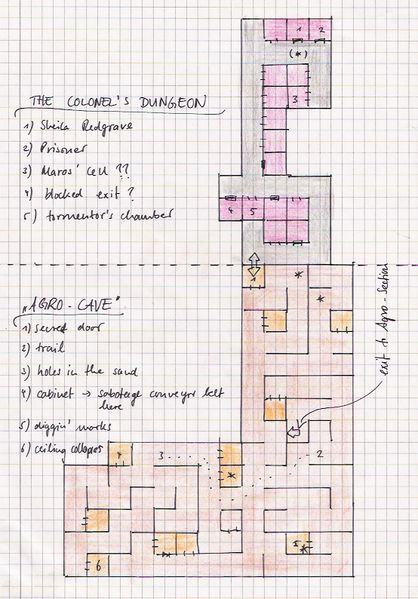 THE COLONEL'S DUNGEON
1) Sheila Redgrave
2) Prisoner
3) Maros' cell ??
4) blocked exit?
5) tormentor's chamber
„AGRO-CAVE"
1) secret door
2) trail
3) holes in the sand
4) cabinet → sabotage conveyr belt
here
5) diggin' works
6) ceiling collapses
1 2
(*)
3
4 5
1
*
*
exit to Agro-Section
4 3 2
*
*
5 *
6